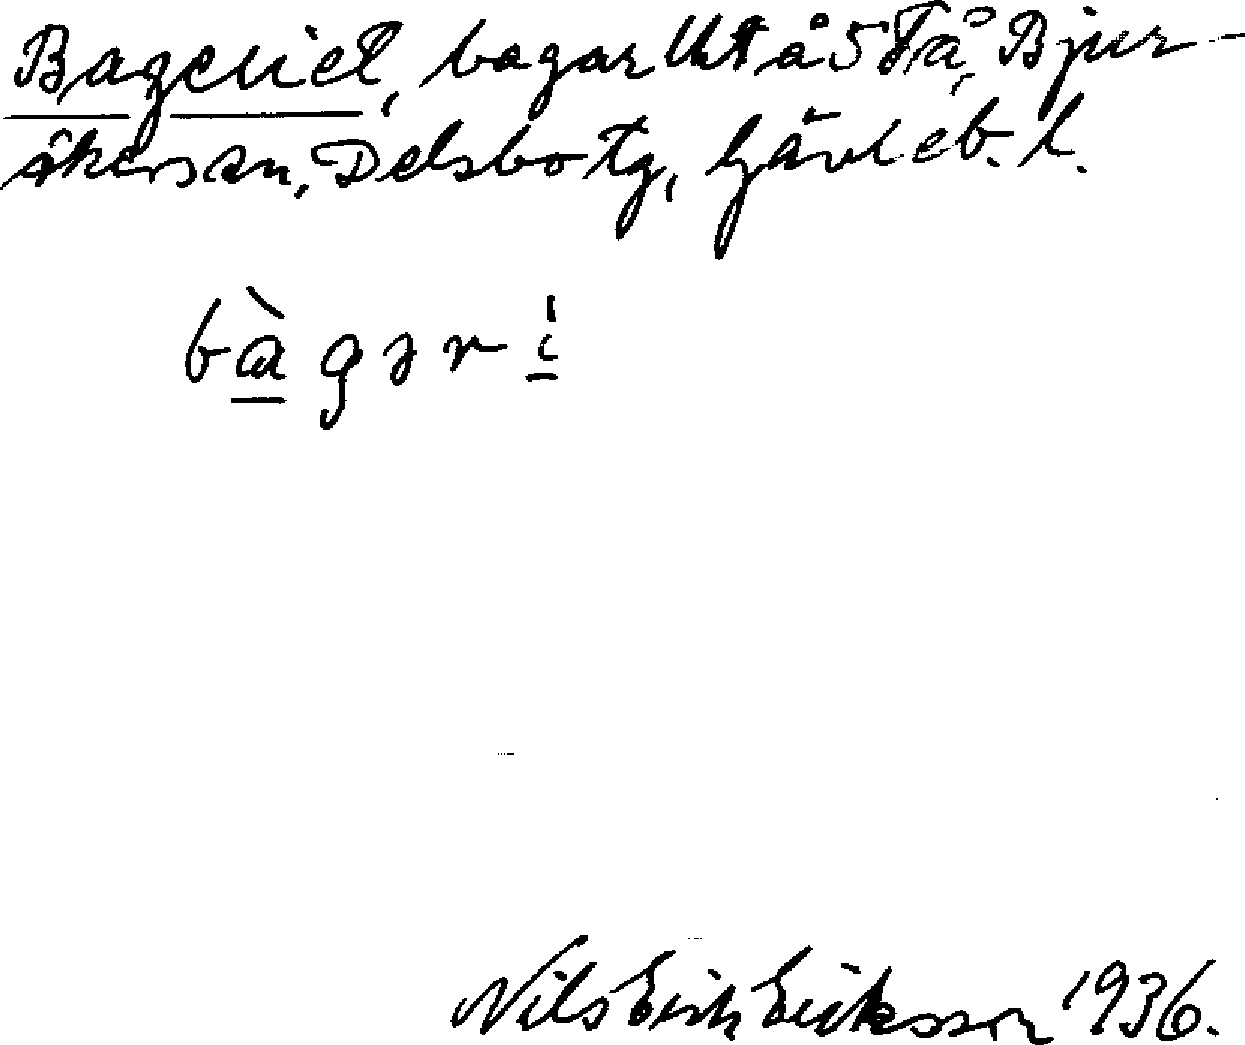 Bageriet, bagarstugan å Stå, Bjur-
åkers sn, Delsbo tg, Gävleb. l.
bàgəri
Nils Erik Eriksson 1936.